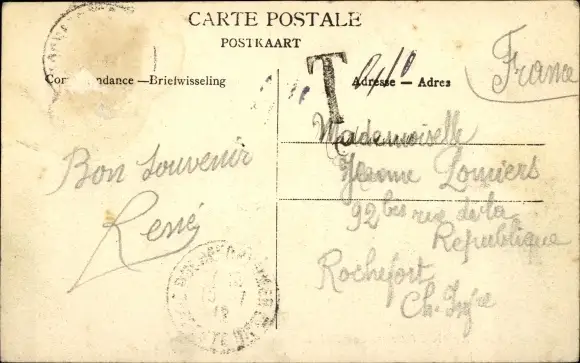 CARTE POSTALE
POSTKAART
Correspondance — Briefwisseling
Adresse — Adres
T
0,10
France
Bon Souvenir
René
Mademoiselle
Jeanne
92 bis rue de la
République
Rochefort
Ch. Infre